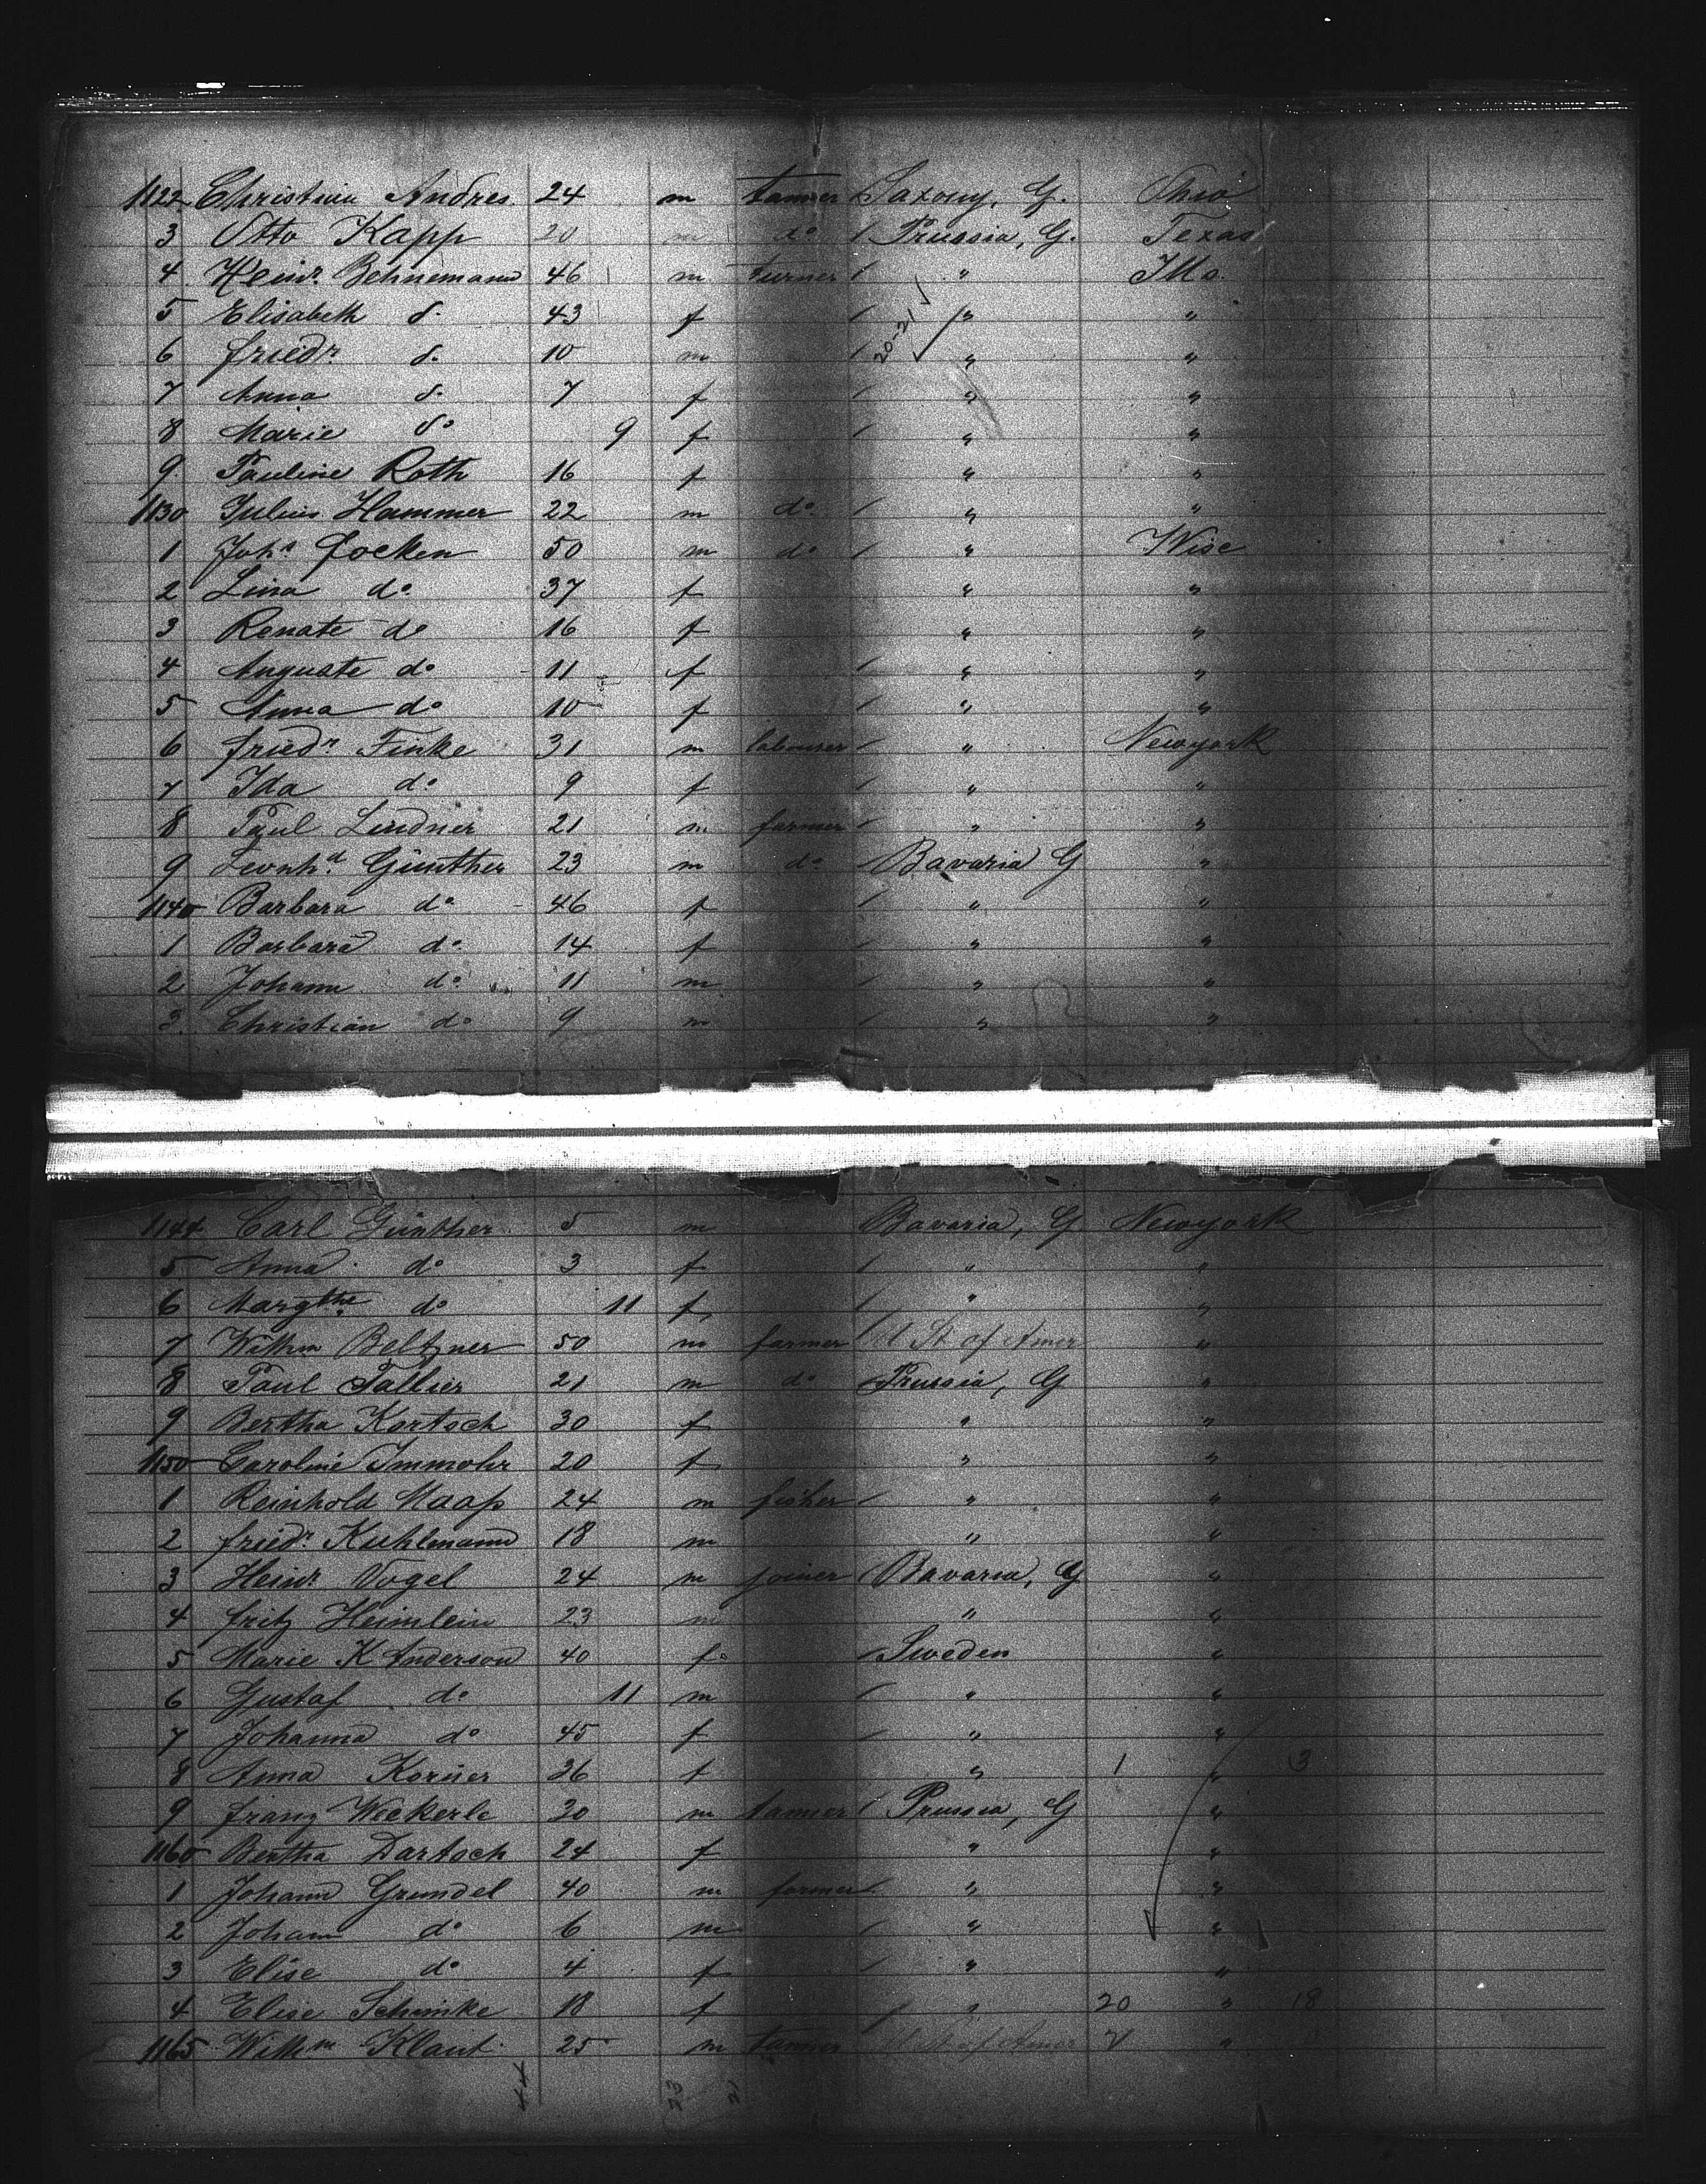 1122 Christian Andres 24 m tanner Saxony, G. Ohio
3 Otto Kapp 20 m do / Prussia, G. Texas
4 Heinr. Bohnemann 46 m turner / " Ills.
5 Elisabeth d. 43 f / " "
6 Friedr d. 10 m / 20-21 " "
7 Anna d. 7 f / " "
8 Marie do 9 f / " "
9 Pauline Roth 16 f " "
1130 Julius Hammer 22 m do / " "
1 Johs Focken 50 m do / " Wisc
2 Lina do 37 f " "
3 Renate do 16 f " "
4 Auguste do 11 f / " "
5 Anna do 10 f / " "
6 Friedr Finke 31 m labourer / " Newyork
7 Ida do 9 f / " "
8 Paul Lindner 21 m farmer / " "
9 Leonhd Günther 23 m do / Bavaria G "
1140 Barbara do 46 f / " "
1 Barbara do 14 f / " "
2 Johann do 11 m / " "
3 Christian do 9 m / " "
1144 Carl Günther 5 m Bavaria, G Newyork
5 Anna do 3 f / " "
6 Margthe do 11 f / " "
7 Willm Beltzner 50 m farmer / U St of Amer "
8 Paul Tallier 21 m do / Prussia, G "
9 Bertha Kortsch 30 f " "
1150 Caroline Immohr 20 f " "
1 Reinhold Maaß 24 m fisher / " "
2 Friedr Kuhlmann 18 m " "
3 Heinr Vogel 24 m joiner / Bavaria, G "
4 Fritz Heimlein 23 m " "
5 Marie K Anderson 40 f / Sweden "
6 Gustaf do 11 m / " "
7 Johanna do 45 f / " "
8 Anna Korner 36 f " 1 " 3
9 Franz Weckerle 30 m tanner / Prussia, G "
1160 Bertha Dartsch 24 f " "
1 Johann Grundel 40 m farmer / " "
2 Johann do 6 m / " "
3 Elise do 4 f / " "
4 Elise Schimke 18 f / " 20 " 18
1165 Willm Klaut 25 m tanner U St of Amer "
44 23 21